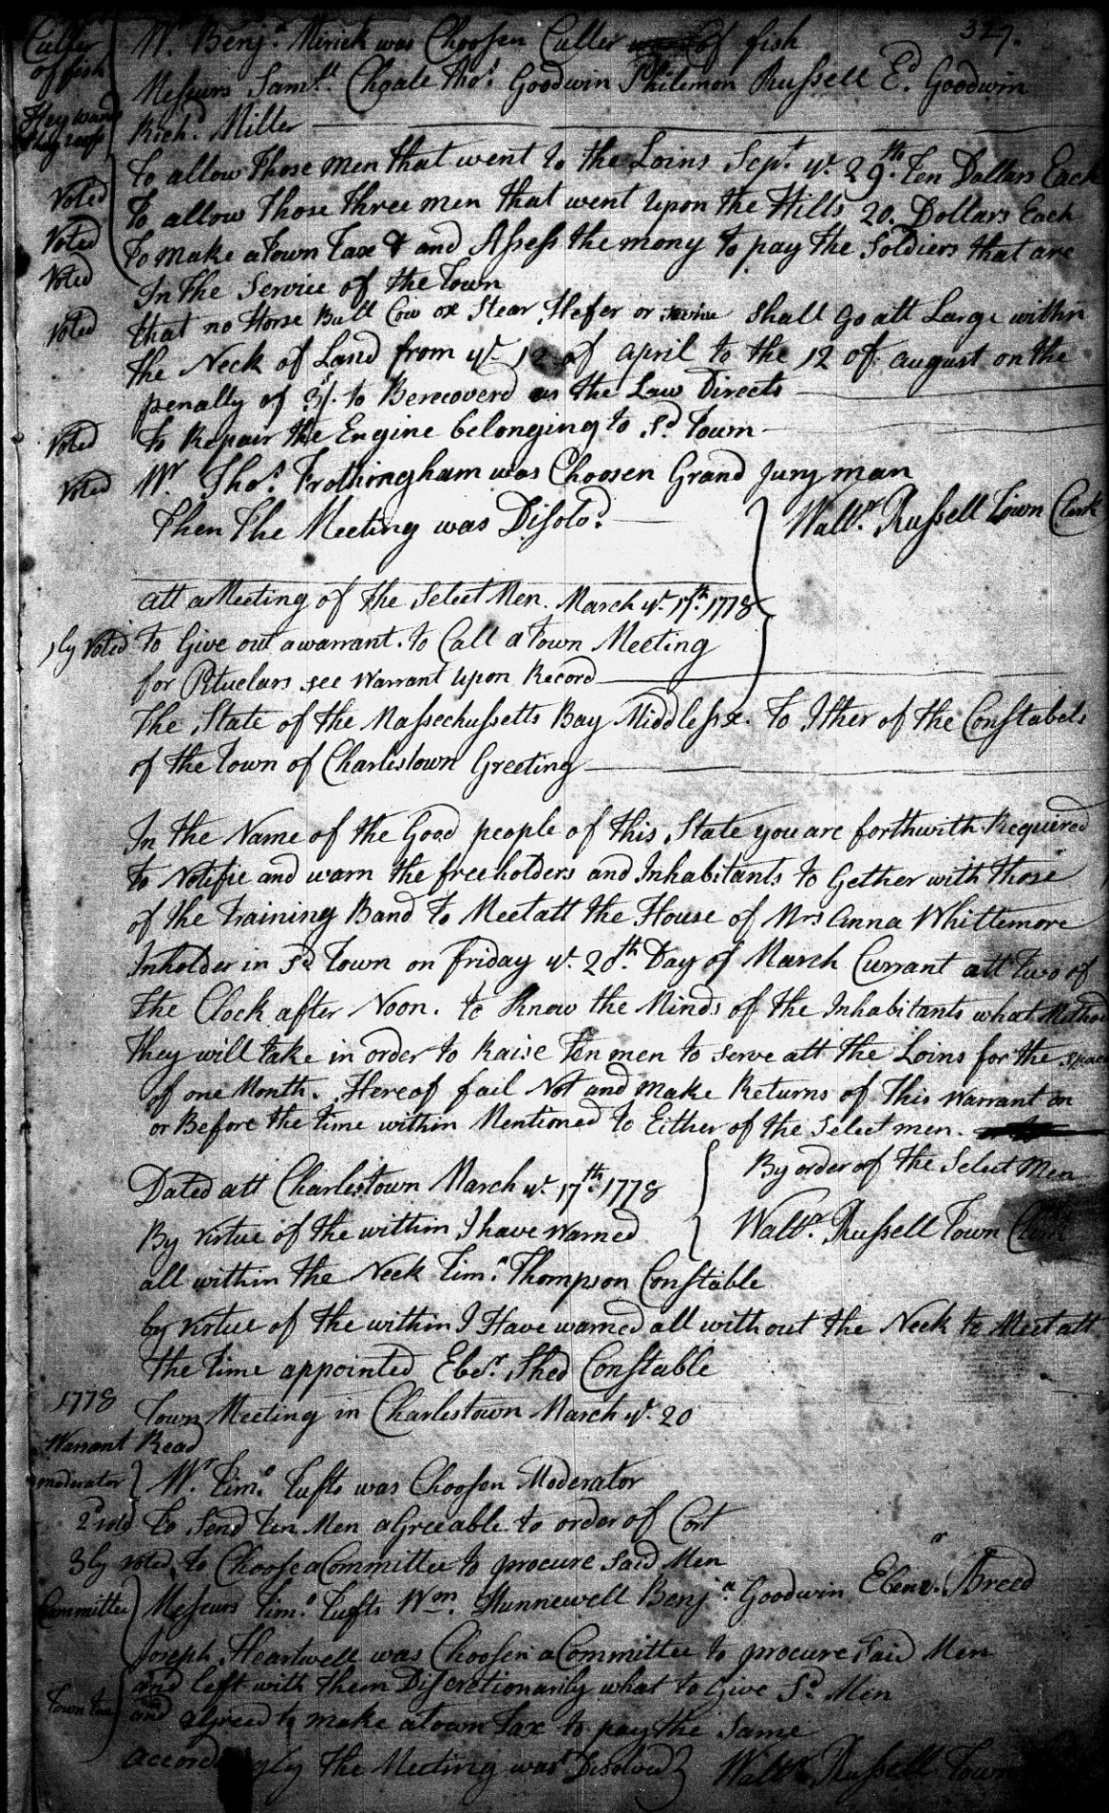 327.
Culler of fish Mr. Benja. Mirick was Choosen Culler of fish
Messurs Samll. Choate Thos. Goodwin Philemon Russell Ed. Goodwin
Richd. Miller
To allow Those men that went to the Loins Sept. ye. 29th. Ten Dollars Each
Voted To allow Those three men that went Upon the Hills 20. Dollars Each
Voted To make a Town Tax & and Assess the mony to pay the Soldiers that are
Voted In the Service of the Town
Voted that no Horse Bull Cow ox Stear Hefer or swine Shall Go att Large within
the Neck of Land from ye. 12 of april to the 12 of august on the
penalty of 3/. to Berecoverd as the Law Directs
Voted To Repair the Engine belonging to Sd. Town
Voted Mr. Thos. Frothingham was Choosen Grand Jury man
Then The Meeting was Disolvd.
Waltr. Russell Town Clerk
att a Meeting of the Select Men. March ye. 17th. 1778
1ly Voted To Give out a warrant. to Call a Town Meeting
for Pituclars see Warrant Upon Record
The State of the Massechussetts Bay Middlesex. To Ither of the Constabels
of the Town of Charlestown Greeting
In the Name of the Good people of this State you are forthwith Required
To Notifie and warn the freeholders and Inhabitants to Gether with those
of the Training Band to Meet att the House of Mrs Anna Whittemore
Inholder in Sd Town on friday ye. 20th. Day of March Currant att two of
the Clock after Noon. to Know the Minds of the Inhabitants what Method
they will take in order to Raise Ten men to serve att the Loins for the space
of one Month. Hereof fail Not and Make Returns of this Warrant on
or Before the time within Mentioned to Either of the Select men.
Dated att Charlestown March ye. 17th. 1778
By order of the Select Men
Waltr. Russell Town Clerk
By virtue of the within I have warned
all within the Neck Timo. Thompson Constable
by virtue of the within I Have warned all without the Neck to Meet att
the time appointed Eber. Shed Constable
1778 Town Meeting in Charlestown March ye. 20
Warrant Read
moderator Mr. Timo. Tufts was Choosen Moderator
2d voted To Send Ten Men aGreeable to order of Cort
3ly voted, to Choose a Committee to procure Said Men
Committee Messurs Timo. Tufts Wm. Hunnewell Benja. Goodwin Ebenr. Breed
Joseph Heartwell was Choosen a Committee to procure Said Men
and left with them Discretionarily what to Give Sd. Men
Town tax and agreed to make a town tax to pay the Same
accordingly The Meeting was Disolved Waltr. Russell Town